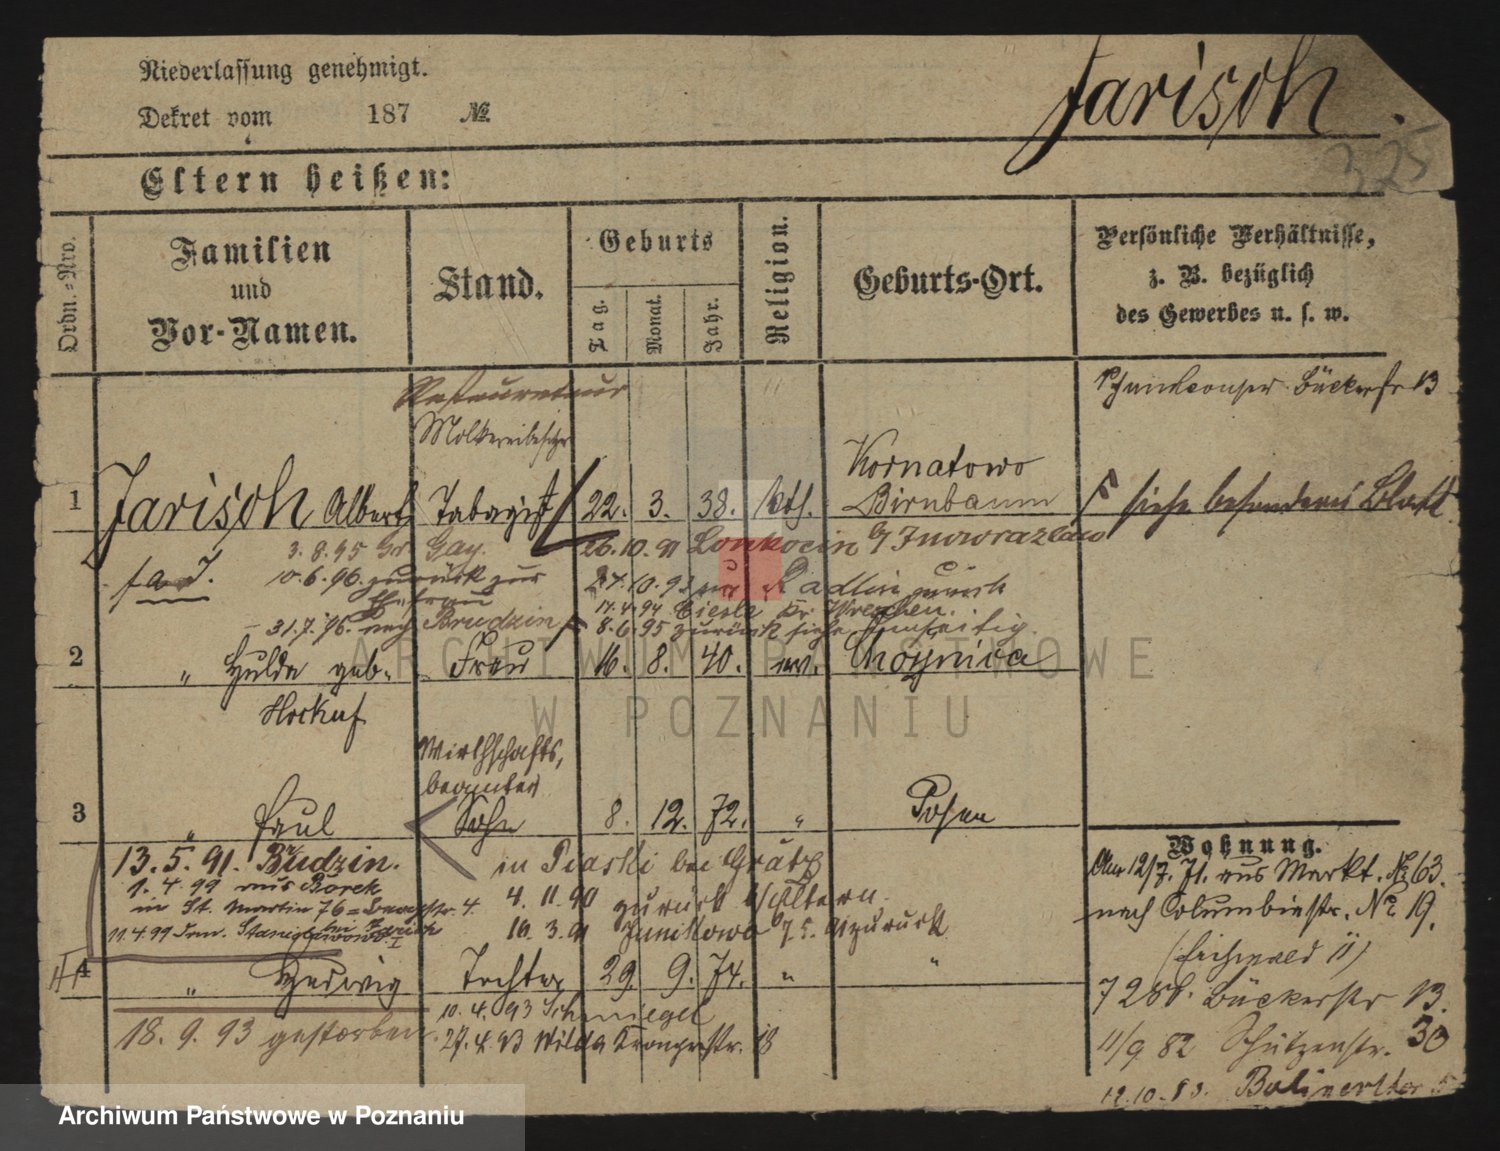 Niederlassung genehmigt.
Dekret vom 187 №
Jarisch.
325
Eltern heißen:
Ordn.-Nro.
Familien
und
Vor-Namen.
Stand.
Geburts
Tag.
Monat.
Jahr.
Religion.
Geburts-Ort.
Persönliche Verhältnisse,
z. B. bezüglich
des Gewerbes u. s. w.
Restaurateur
Bäckerstr 13
Molkereibesitzer
1 Jarisch Albert Tabagist 22. 3. 38. kth. Kornatowo
Birnbaum
siehe besonderes Blatt
3.8.95 Gr. Gay. 26.10.91 Lonkocin b/ Inowrazlaw
10.6.96. zurück zur
Ehefrau
27.10.93 Radlin zurück
17.4.94 Kr. Wreschen.
31.7.96. nach Brudzin
8.6.95 zurück siehe
2 " Hulda geb. Frau 16. 8. 40. ev. Choynica
Hockuf
Wirthschafts,
beamter
3 " Paul Sohn 8. 12. 72. " Posen
13.5.91. Brudzin.
in Piaski bei Grätz
1.4.99 aus Borek
in St. Martin 76
4.11.90 zurück
11.4.99
16.3.91 Junikowo 7.5. 91 zurück
4 " Hedwig Tochter 29. 9. 74. " "
18.9.93 gestorben.
10.4.93 Schmiegel
27.4.93 Wilda Kronprstr. 18
Wohnung.
Am 12/7. 71. aus Markt. № 63.
nach Columbiastr. № 19.
(Eichwald ii)
7 2 81. Bäckerstr 13.
11/9 82 Schützenstr. 30
12.10.83.
Archiwum Państwowe w Poznaniu
ARCHIWUM PAŃSTWOWE
W POZNANIU